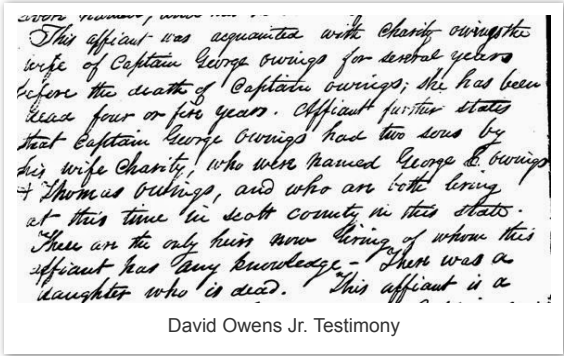 This affiant was acquainted with Charity Owings the
wife of Captain George Owings for several years
before the death of Captain Owings; she has been
dead four or five years. Affiant further states
that Captain George Owings had two sons by
his wife Charity, who were named George E. Owings
& Thomas Owings, and who are both living
at this time in Scott county in this state.
These are the only heirs now living of whom this
affiant has any knowledge - There was a
daughter who is dead. This affiant is a
David Owens Jr. Testimony